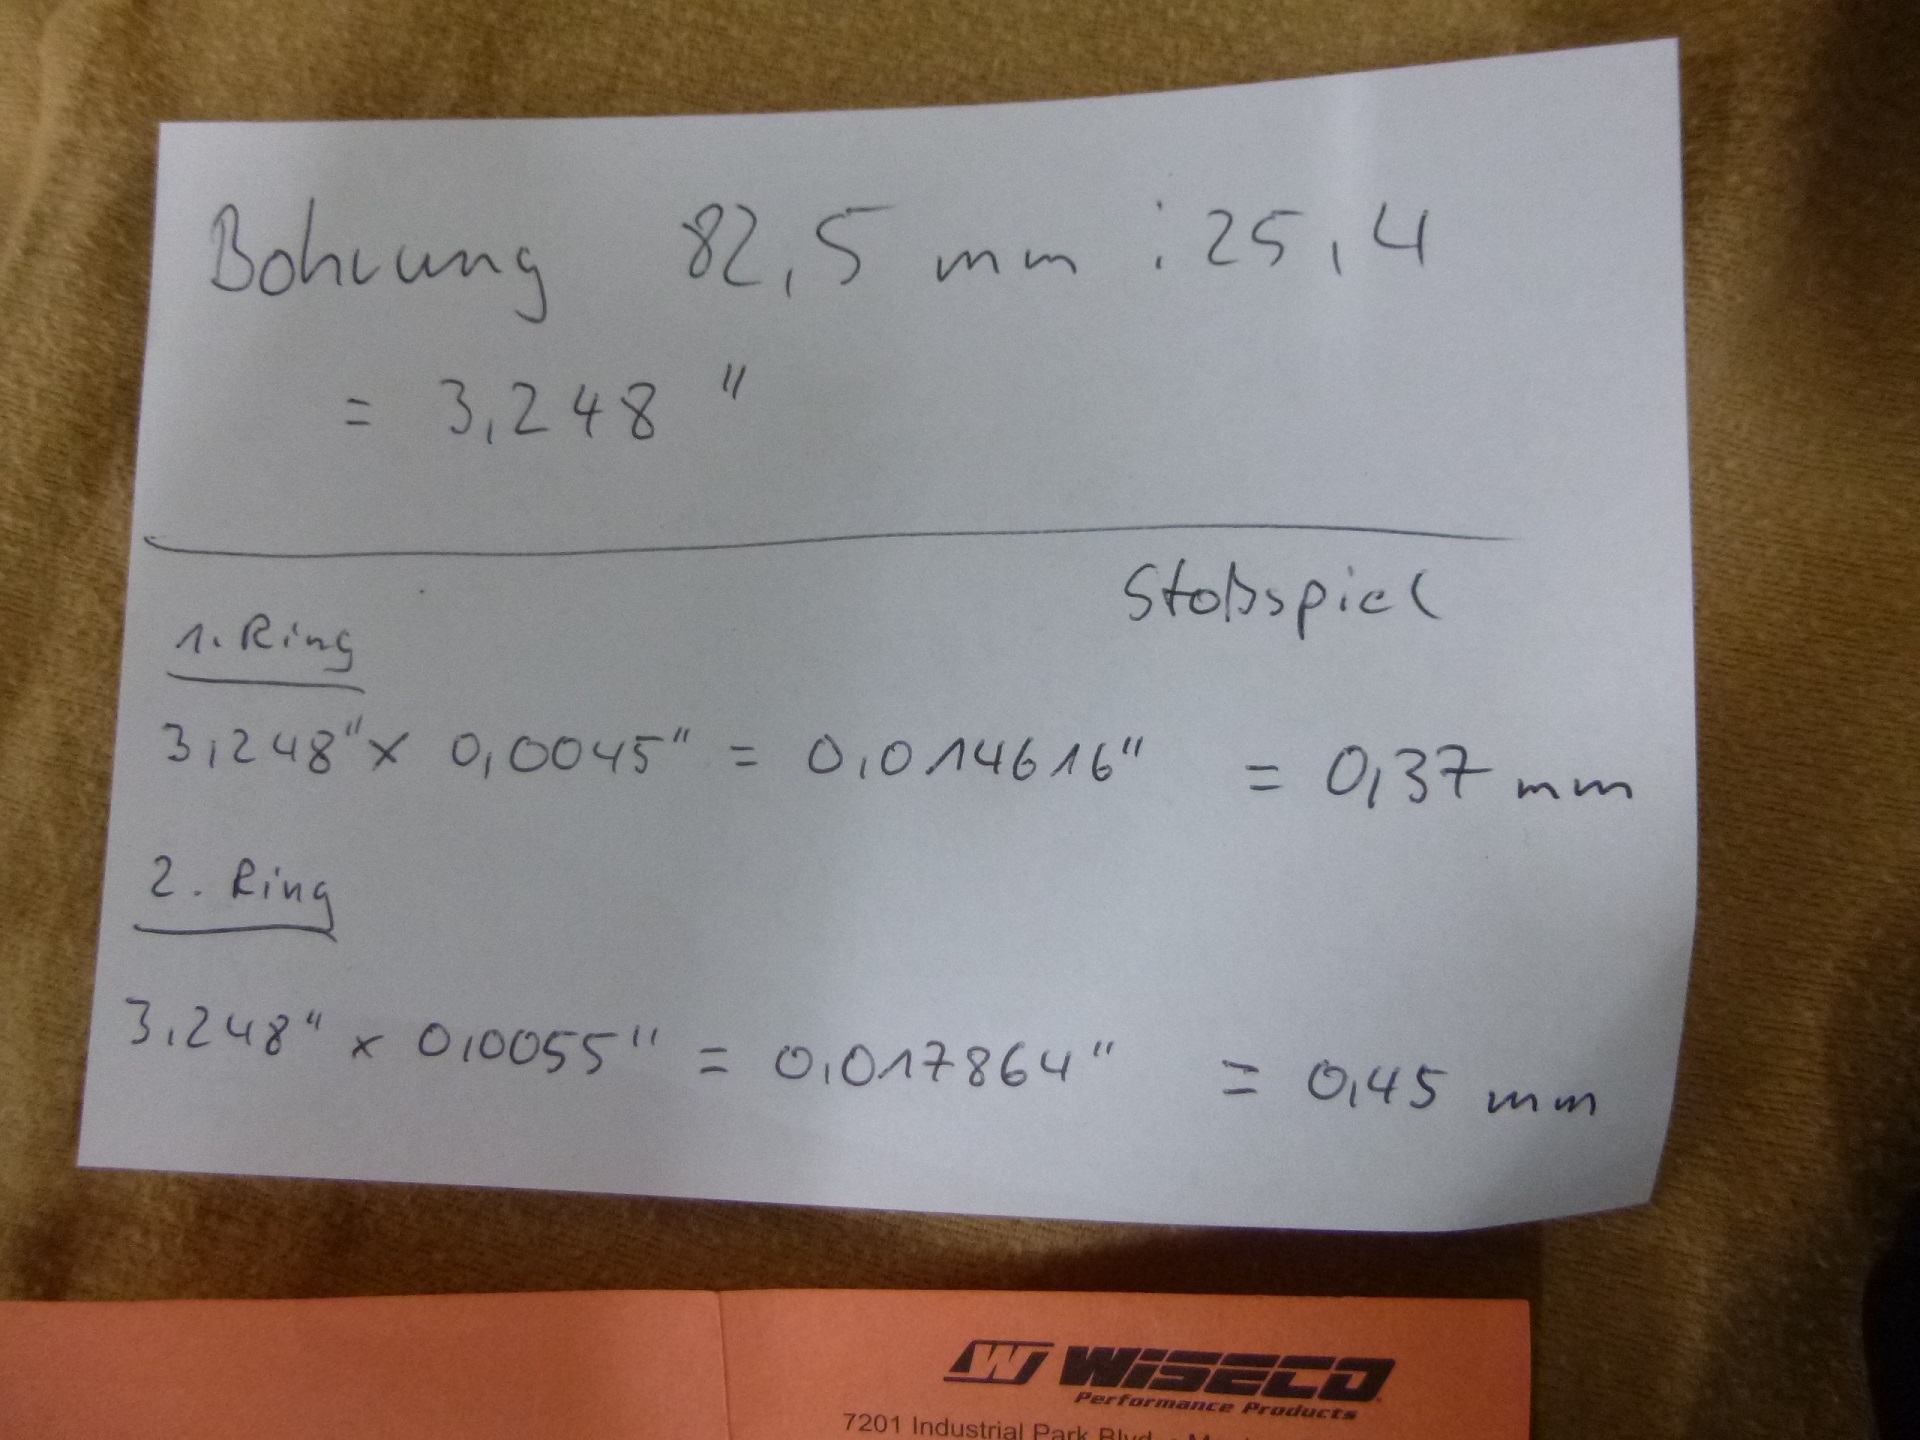 Bohrung 82,5 mm : 25,4
= 3,248 "
Stoßspiel
1. Ring
3,248" x 0,0045" = 0,014616" = 0,37 mm
2. Ring
3,248" x 0,0055" = 0,017864" = 0,45 mm
W WISECO
Performance Products
7201 Industrial Park Blvd